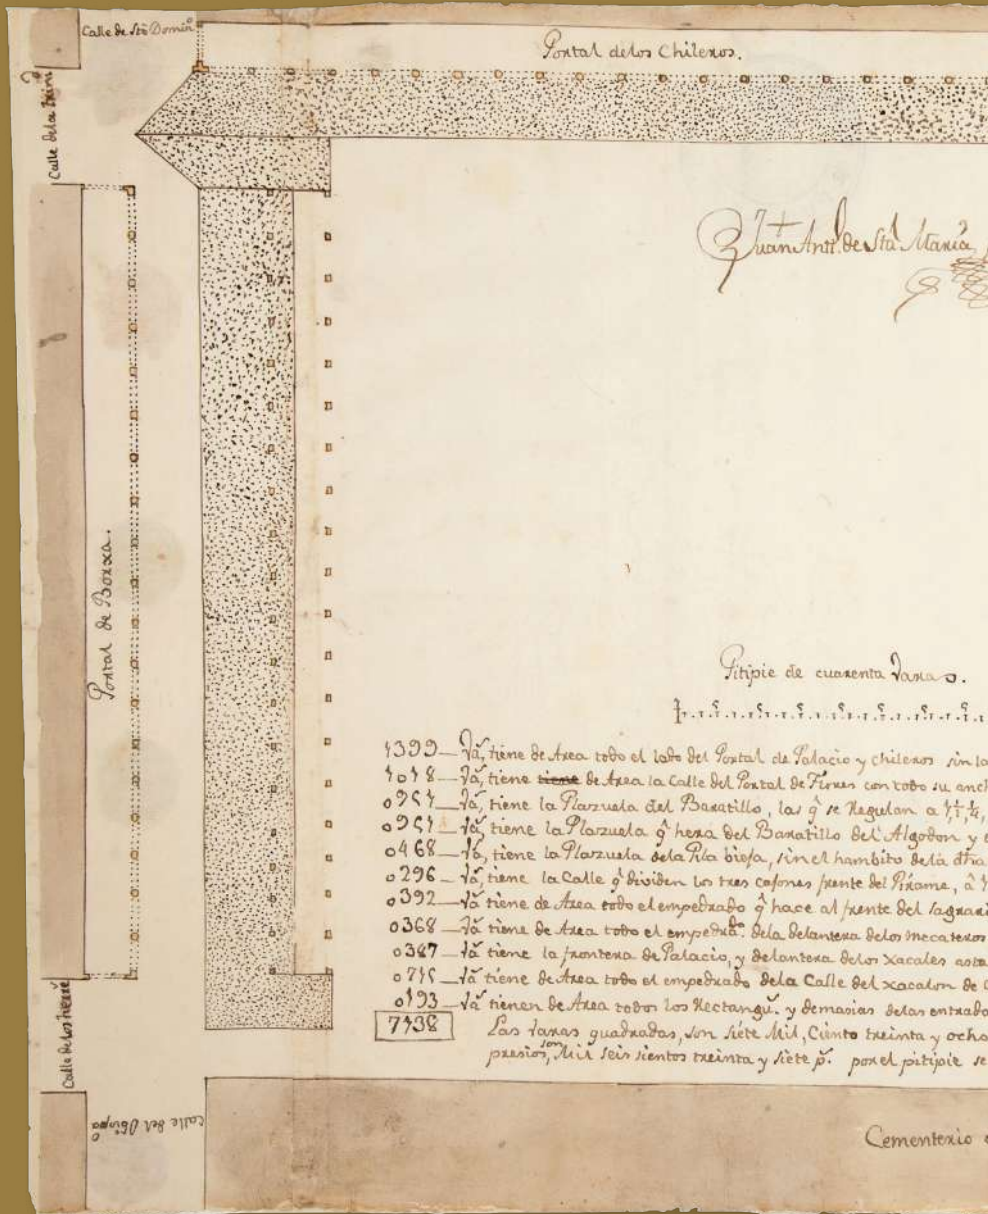 Calle de Stō Domīn̄
Portal delos Chilexos.
Calle dela
Juan Antt. de Stā Maria
Portal de Borxa.
Pitipie de cuarenta Varas.
1399 Vā, tiene de Area todo el lado del Portal de Palacio y chilexos sin la
1018 Vā, tiene tiene de Area la Calle del Portal de Flores con todo su anch
0951 Vā, tiene la Plazuela del Baratillo, las q̄ se Regulan a
0951 Vā, tiene la Plazuela q̄ hera del Baratillo del Algodon y
0468 Vā, tiene la Plazuela dela Pila bieja, sin el hambito dela dha
0296 Vā, tiene la Calle q̄ dividen los tres cajones frente del Pirame, â
0392 Vā tiene de Area todo el empedrado q̄ hace al frente del sagrari
0368 Vā tiene de Area todo el empedrādo. dela delantera delos Mecateros
0387 Vā tiene la frontera de Palacio, y delantera delos xacales asta
0715 Vā tiene de Area todo el empedrado dela Calle del xacalon de
0193 Vā tienen de Area todos los Rectangū. y demasias delas entrado
7138 Las varas quadradas, son siete Mil, Ciento treinta y ocho
presios, son Mil seis sientos treinta y siete p̄. por el pitipie se
Calle delos
Calle del Obispō
Cementerio